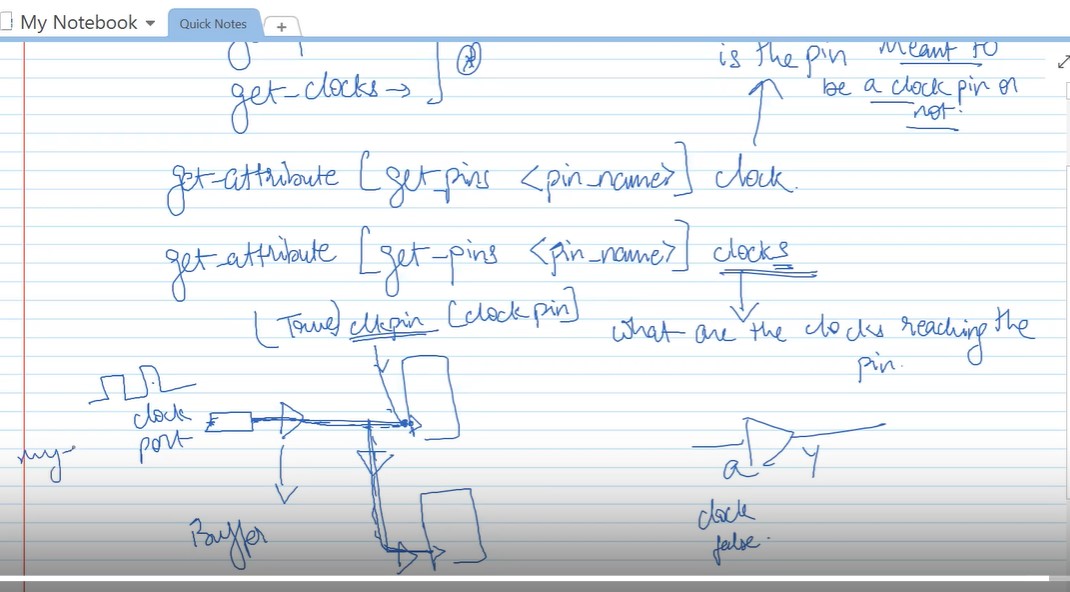 My Notebook
Quick Notes
+
get-clocks →
is the pin meant to
be a clock pin or
not.
get-attribute [get_pins <pin_name>] clock.
get-attribute [get-pins <pin_name>] clocks
clkpin [clock pin]
what are the clocks reaching the
pin.
clock
port
my-
Buffer
a
Y
clock
false.